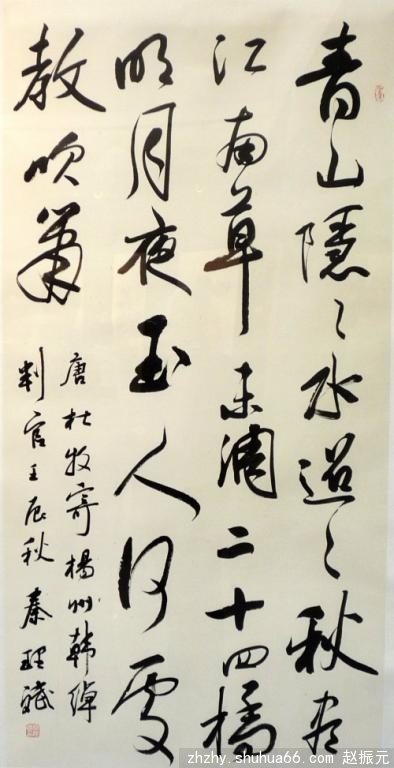 青山隱々水迢々秋尽
江南草未凋二十四橋
明月夜玉人何處
教吹簫
唐杜牧寄楊州韩绰
判官壬辰秋秦理斌
zhzhy.shuhua66.com 赵振元